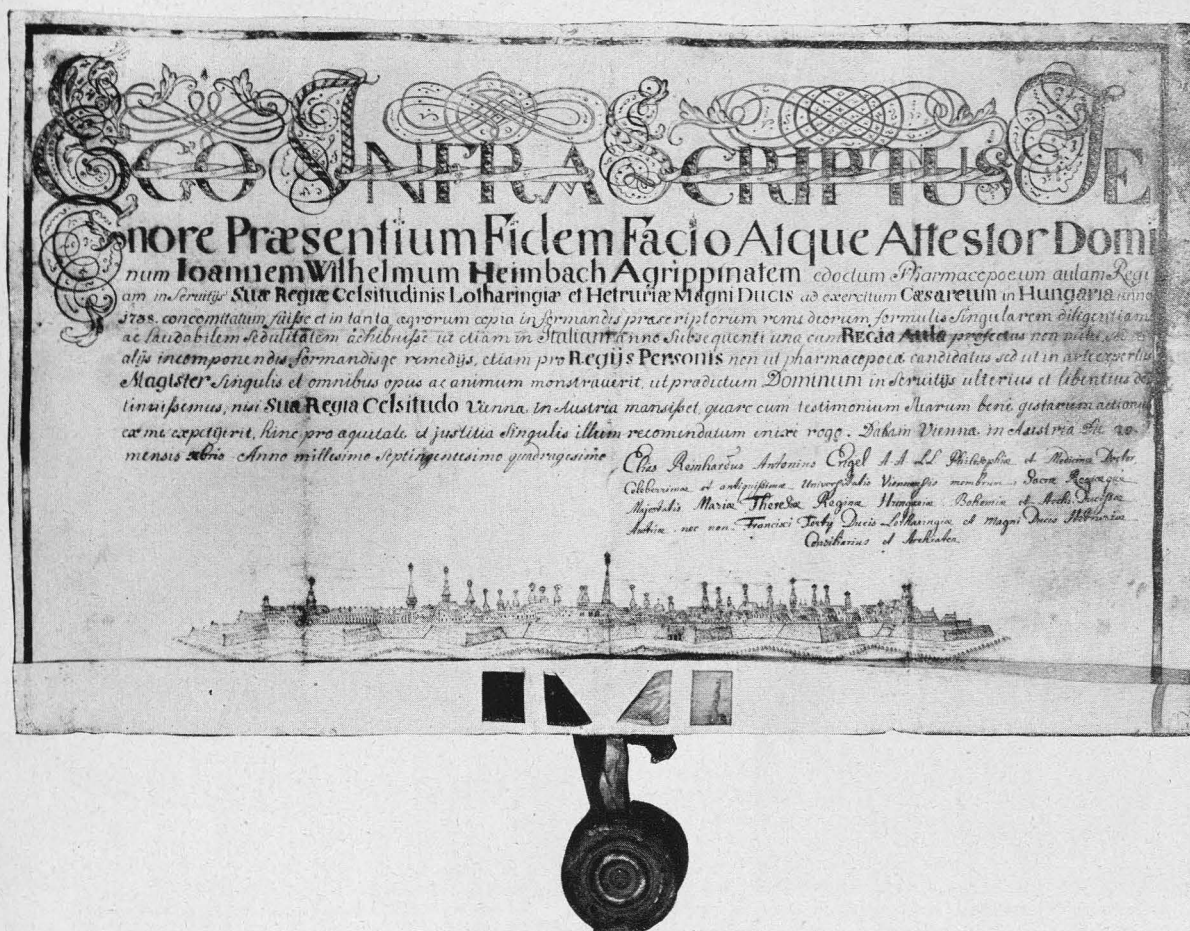 EGO INFRA SCRIPTUS TE
nore Præsentium Fidem Facio Atque Attestor Domi
num Ioannem Wilhelmum Heimbach Agrippinatem edoctum Pharmacopoeum aulam Regi
am in servitijs Suæ Regiæ Celsitudinis Lotharingiæ et Hetruriæ Magni Ducis ad exercitum Cæsareum in Hungaria anno
1738. concomitatum fuisse et in tanta ægrorum copia in formandis præscriptorum remediorum formulis singularem diligentiam
ac laudabilem sedulitatem adhibuisse ut etiam in Italiam anno subsequenti una cum Regia Aula profectus non
alijs incomponendis, formandisqe remedijs, etiam pro Regijs Personis non ut pharmacopoeæ candidatus sed ut in arte expertus
Magister singulis et omnibus opus ac animum monstrauerit, ut prædictum Dominum in servitijs ulterius et libentius de
tinuissemus, nisi Sua Regia Celsitudo Viennæ in Austria mansisset, quare cum testimonium suarum bene gestarum actionum
ex me expetijerit, hinc pro æquitate et justitia singulis illum recomendatum enixe rogo. Dabam Viennæ in Austria Die 20
mensis xbris Anno millesimo septingentesimo quadragesimo
Elias Reinhardus Antonius Engel A A LL Philosophiæ et Medicinæ Doctor,
Celeberrimæ et antiquissimæ Universitatis Viennensis membrum, Sacræ Regiæque
Majestatis Mariæ Theresiæ Reginæ Hungariæ Bohemiæ et Archi Ducissæ
Austriæ nec non Francisci Terty Ducis Lotharingiæ et magni Ducis Hetruriæ
Consiliarius et Archiater